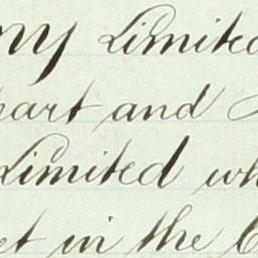 ny Limited
part and
Limited wh
et in the